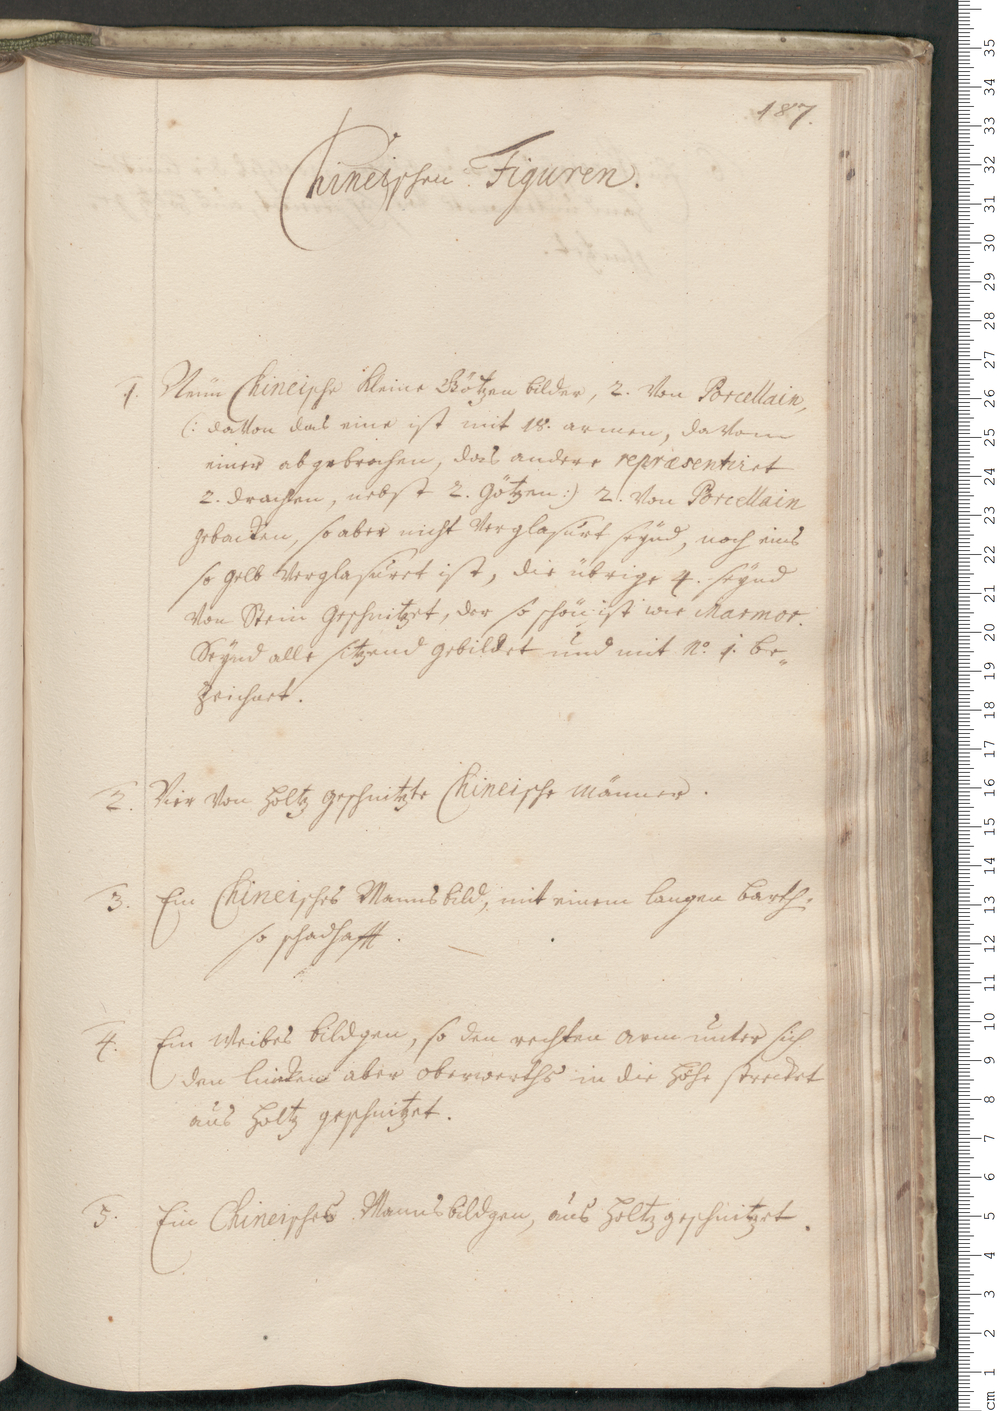 187.
Chineischen Figuren.
1. Neün Chineische kleine Götzen bilder, 2. Von Porcellain,
(: daVon das eine ist mit 18. armen, daVom
einer abgebrochen, das andere repræsentiret
2. drachen, nebst 2. Götzen :) 2. Von Porcellain
gebacken, so aber nicht Verglasurt seÿnd, noch eins
so gelb Verglasuret ist, die übrige 4. seÿnd
Von Stein geschnitzet, der so schön ist wie Marmor.
Seÿnd alle sitzend gebildet und mit N.o 1. be„
zeichnet.
2. Vier Von Holtz geschnitzte Chineische Männer.
3. Ein Chineisches Mannsbild, mit einem langen barth.
so schadhafft.
4. Ein Weibes bildgen, so den rechten arm unter sich
den lincken aber oberwerths in die Höhe strecket
aus Holtz geschnitzet.
5. Ein Chineisches Mannsbildgen, aus Holtz geschnitzet.
cm 1 2 3 4 5 6 7 8 9 10 11 12 13 14 15 16 17 18 19 20 21 22 23 24 25 26 27 28 29 30 31 32 33 34 35